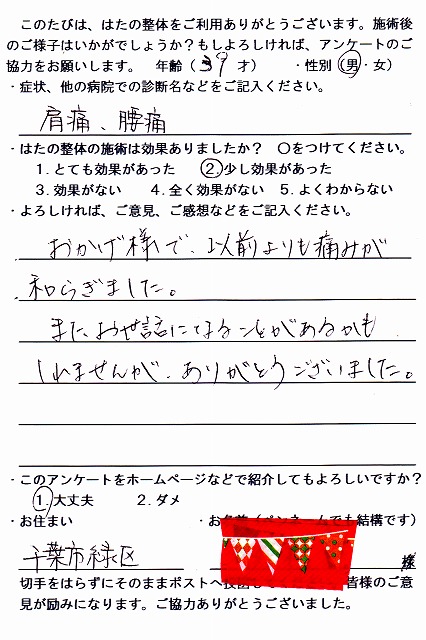 このたびは、はたの整体をご利用ありがとうございます。施術後
のご様子はいかがでしょうか？もしよろしければ、アンケートのご
協力をお願いします。 年齢（39才） ・性別（男・女）
・症状、他の病院での診断名などをご記入ください。
肩痛、腰痛
・はたの整体の施術は効果ありましたか？ ○をつけてください。
1.とても効果があった ②.少し効果があった
3.効果がない 4.全く効果がない 5.よくわからない
・よろしければ、ご意見、ご感想などをご記入ください。
おかげ様で、以前よりも痛みが
和らぎました。
またお世話になることがあるかも
しれませんが、ありがとうございました。
・このアンケートをホームページなどで紹介してもよろしいですか？
①.大丈夫 2.ダメ
・お住まい ・お名前（ペンネームでも結構です）
千葉市緑区 様
切手をはらずにそのままポストへ 皆様のご意
見が励みになります。ご協力ありがとうございました。